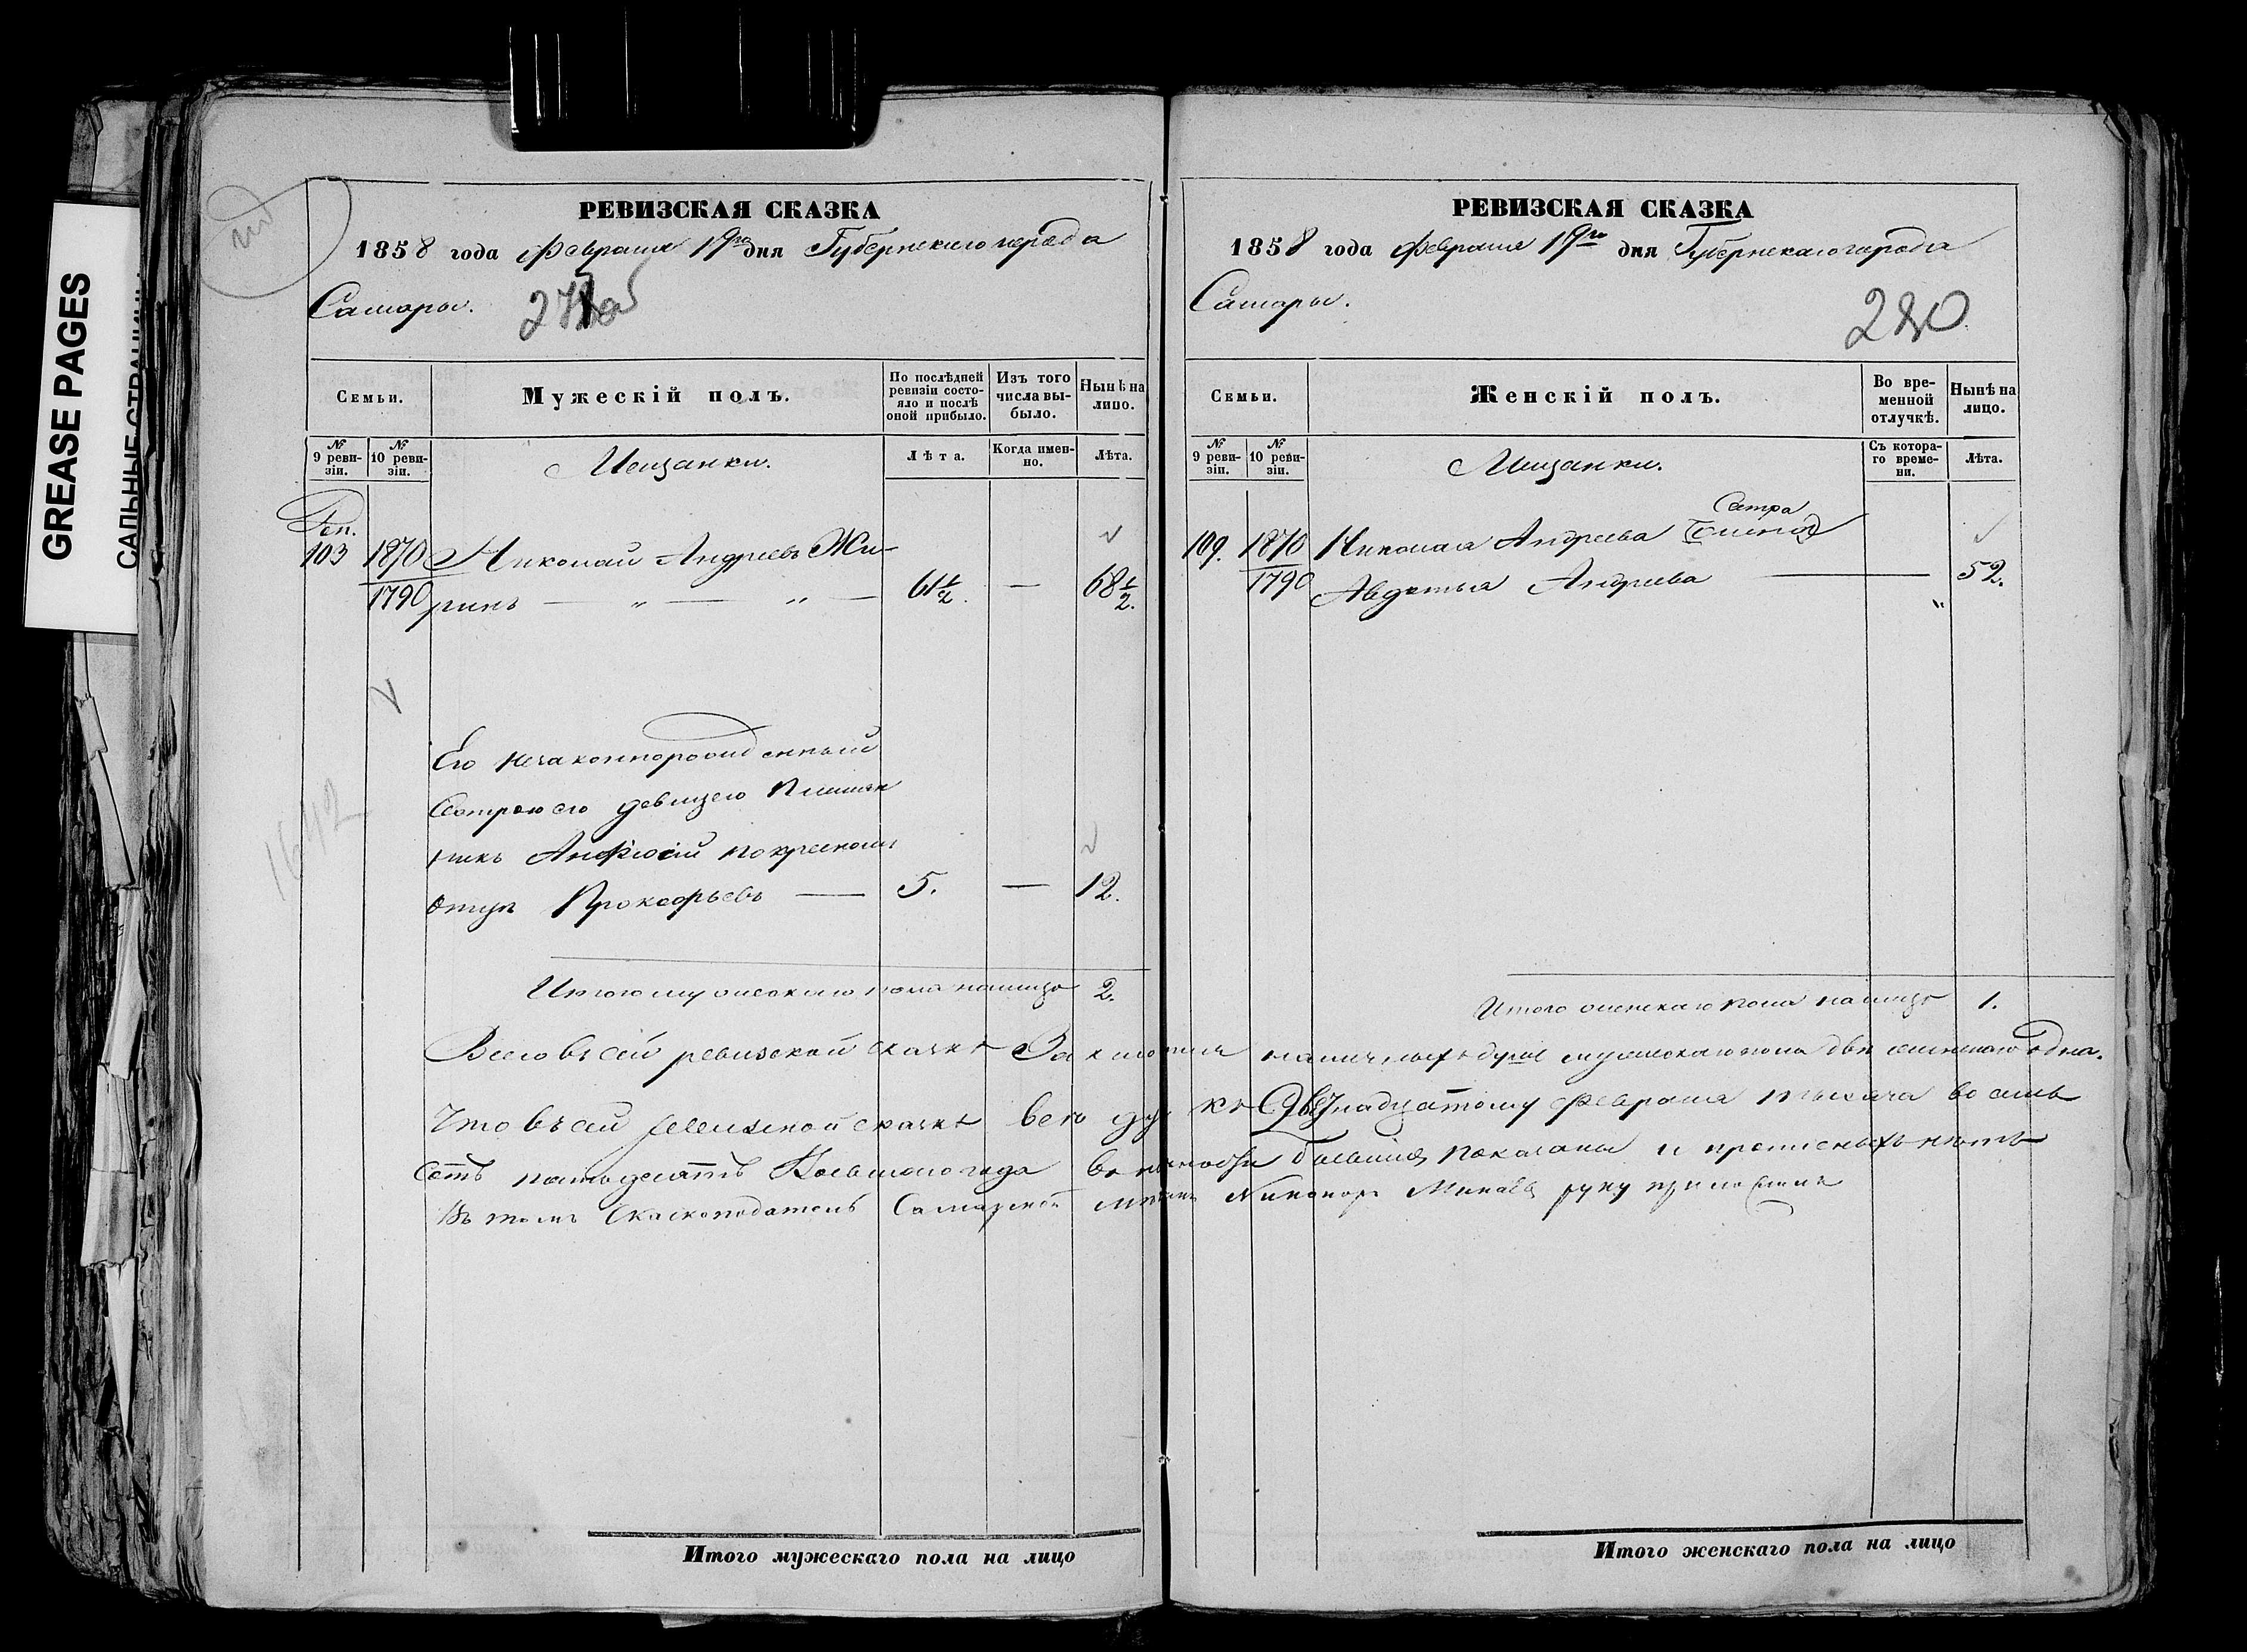 GREASE PAGES
САЛЬНЫЕ СТРАНИЦЫ
РЕВИЗСКАЯ СКАЗКА
1858 года Февраля 19го дня Губернскаго города
Самары.
Семьи.
Мужескій полъ.
По послѣдней ревизіи состояло и послѣ оной прибыло.
Изъ того числа выбыло.
Нынѣ на лицо.
№ 9 ревизіи.
№ 10 ревизіи.
Мещанки.
Лѣта.
Когда именно.
Лѣта.
103 1870 Николай Андреевъ Жи-
1790 ринъ — „ — „ — 61 1/2. — 68 1/2.
Его незаконнорожденный
Сестрою его девицею Племян
никъ покресному
отцу Прокофьевъ — 5. — 12.
1642
Итого мужескаго пола налицо 2.
РЕВИЗСКАЯ СКАЗКА
1858 года Февраля 19го дня Губернскаго города
Самары.
280
Семьи.
Женскій полъ.
Во временной отлучкѣ.
Нынѣ на лицо.
№ 9 ревизіи.
№ 10 ревизіи.
Мещанки.
Съ котораго времени.
Лѣта.
Сестра
109. 1870 Николая Андреева
1790 Авдотья Андреева — 52.
Итого женскаго пола налицо 1.
Всего въ сей ревизской сказкѣ наличныхъ душъ мужескаго пола двѣ женскаго одна.
Что въ сей ревизской сказкѣ все Февраля тысяча восемь
сотъ пятьдесятъ Восьмого года показаны и прописныхъ нѣтъ
Въ томъ Сказкоподатель Самарской Никоноръ Минаевъ руку приложилъ
Итого мужескаго пола на лицо
Итого женскаго пола на лицо